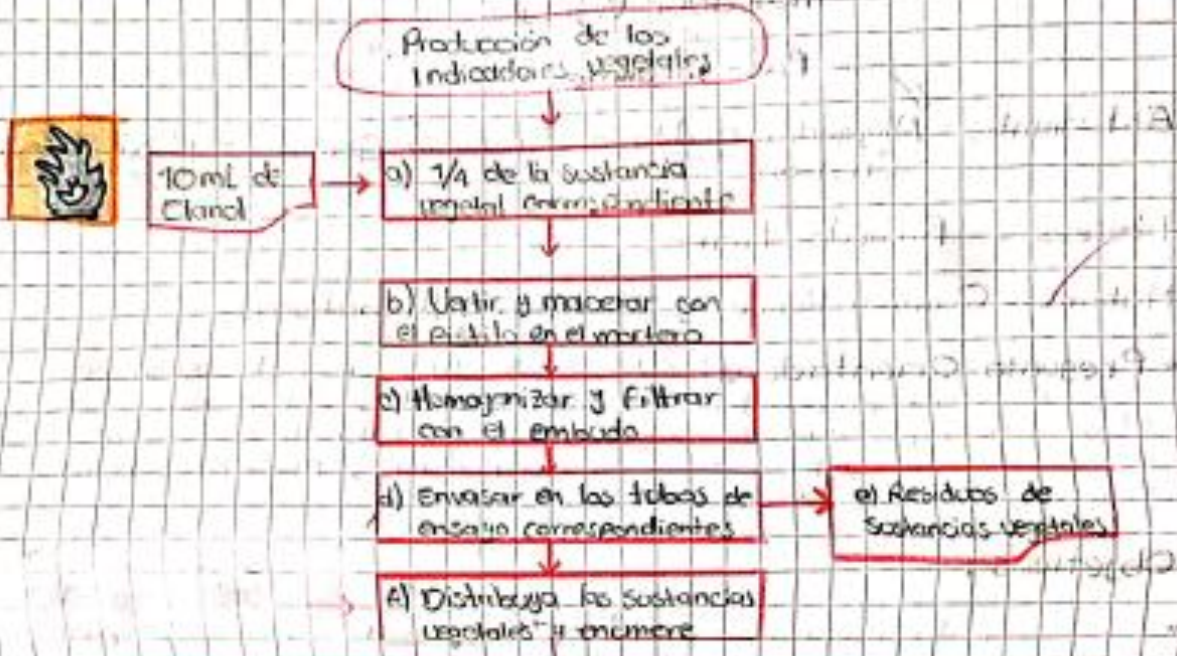 Producción de los
Indicadores vegetales
10 mL de
Etanol
a) 1/4 de la sustancia
vegetal correspondiente
b) Vertir y macerar con
el pistilo en el mortero
c) Homogenizar y filtrar
con el embudo
d) Envasar en los tubos de
ensayo correspondientes
e) Residuos de
sustancias vegetales
f) Distribuya las sustancias
vegetales y enumere